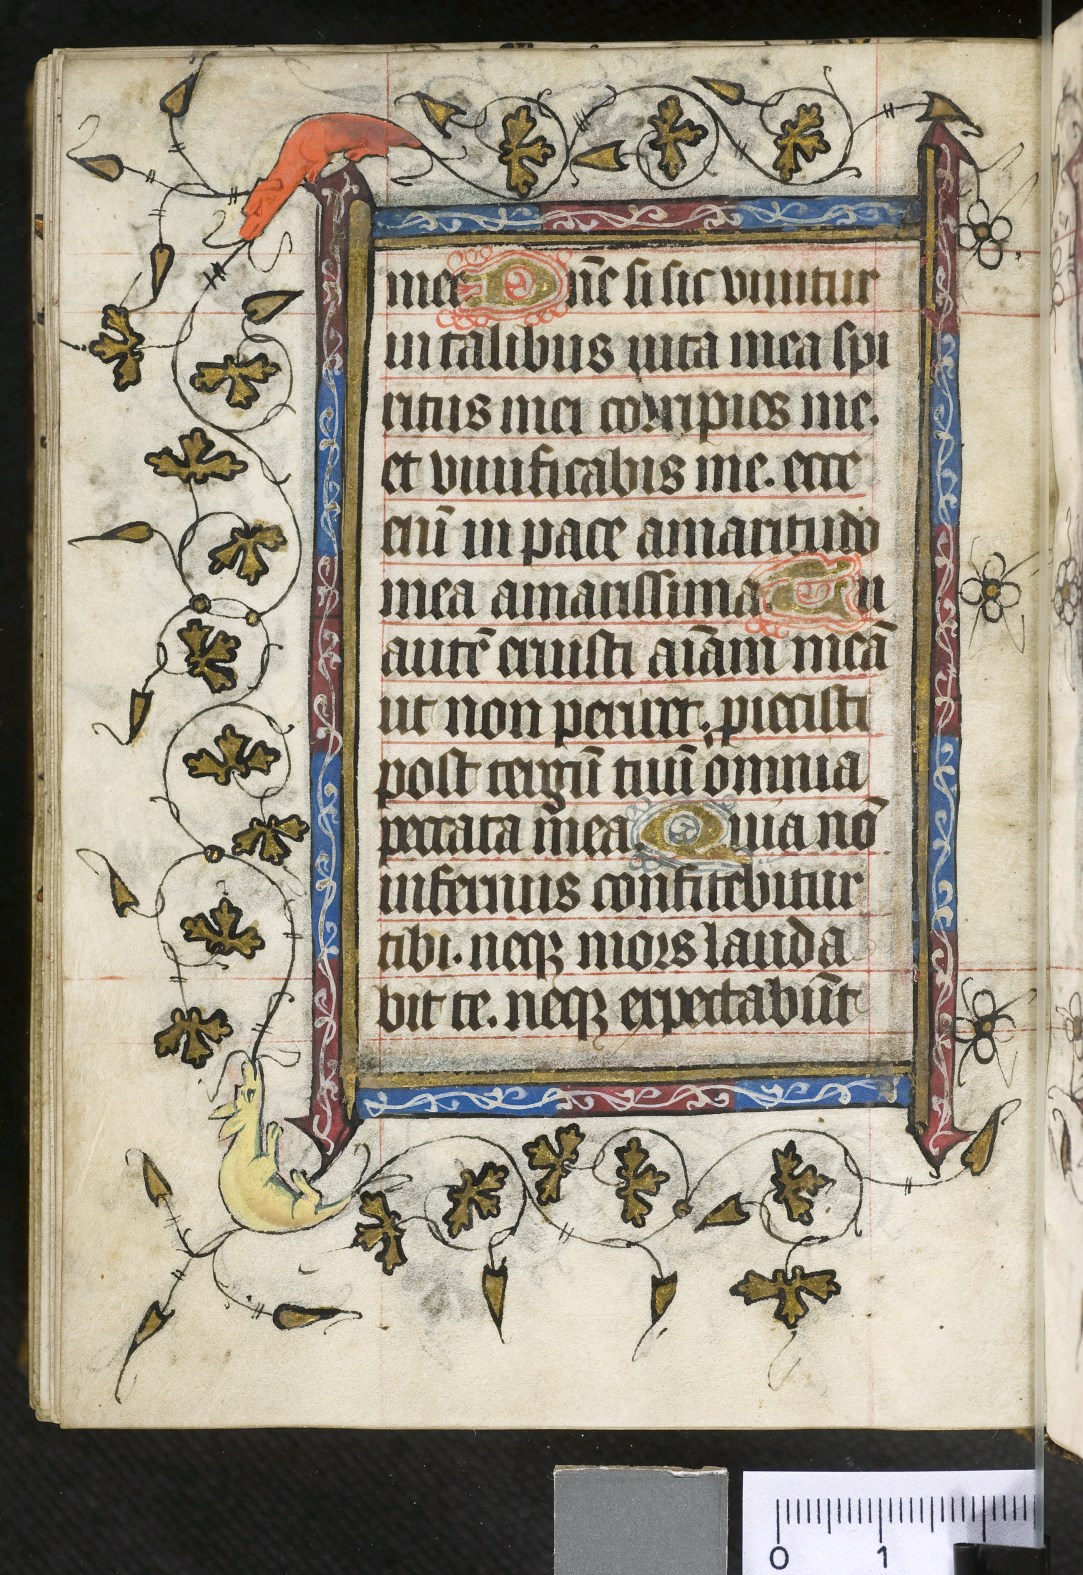 mee Dn̄e si sic viuitur
in talibus uita mea spi
ritus mei corripies me.
et viuificabis me. ecce
eni᷒ in pace amaritudo
mea amarissima. Tu
aute᷒ eruisti aīam meā
ut non periret. piecisti
post tergū tuū omnia
peccata mea. Quia nō
infernus confitebitur
tibi. neqꝫ mors lauda
bit te. neqꝫ expectabūt
0 1